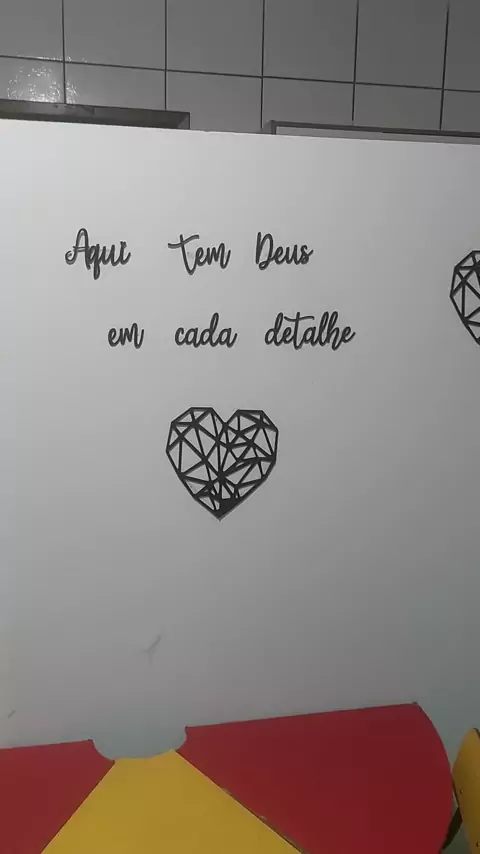 Aqui Tem Deus
em cada detalhe